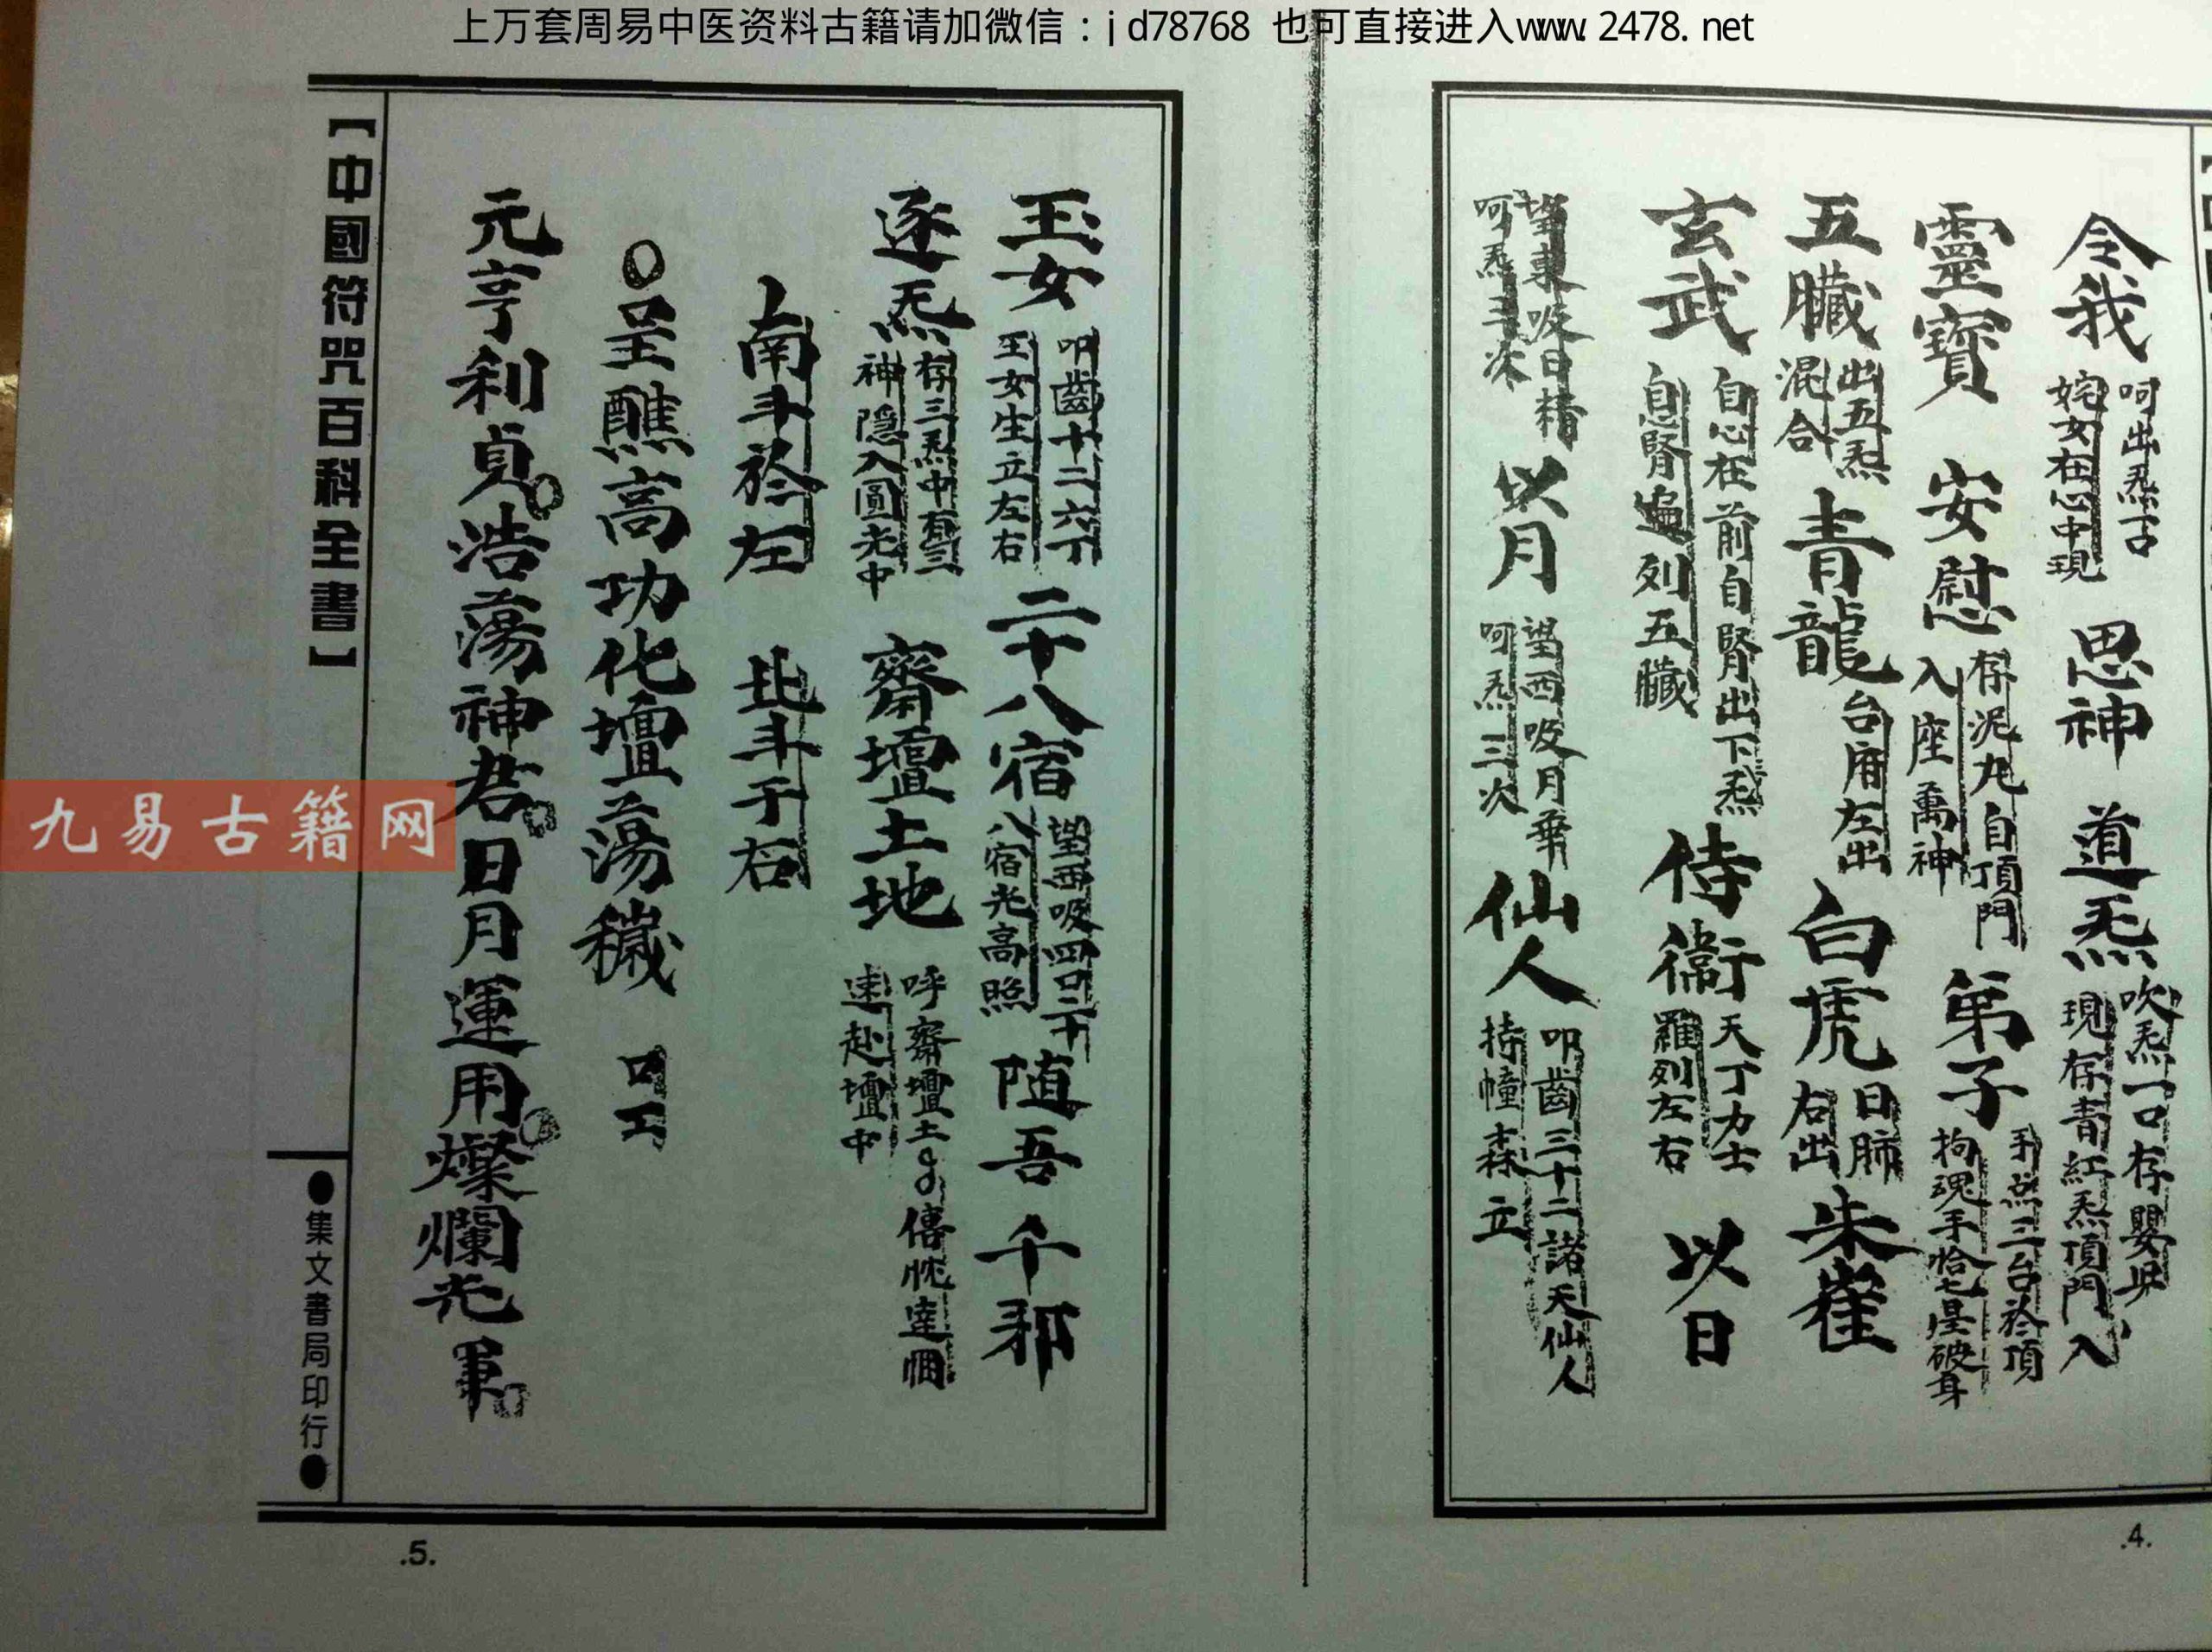 上万套周易中医资料古籍请加微信：jd78768 也可直接进入www.2478.net
令我
呵出炁
姹女在心中現
思神
道炁
吹炁一口存嬰
現存青紅炁頂門入
靈寶
安慰
存泥丸自頂門
入座萬神
弟子
手点三台於頂
拘魂手恰七星破身
五臟
出五炁
混合
青龍
台府左出
白虎
日肺
右出
朱雀
玄武
自心在前自腎出下炁
自腎遍列五臟
侍衛
天丁力士
羅列左右
以日
望東吸日精
呵炁三次
以月
望西吸月華
呵炁三次
仙人
叩齒三十二諸天仙人
持幢森立
.4.
玉女
叩齒十二六丁
玉女生立左右
二十八宿
望西吸四口二十
八宿光高照
随吾
千邪
逐炁
存三炁中有三
神隐入圓光中
齋壇土地
呼齋壇土
速赴壇中
南斗於左
北斗于右
呈醮高功化壇蕩穢
元亨利貞浩蕩神君日月運用燦爛光
【中國符咒百科全書】
●集文書局印行●
.5.
九易古籍网